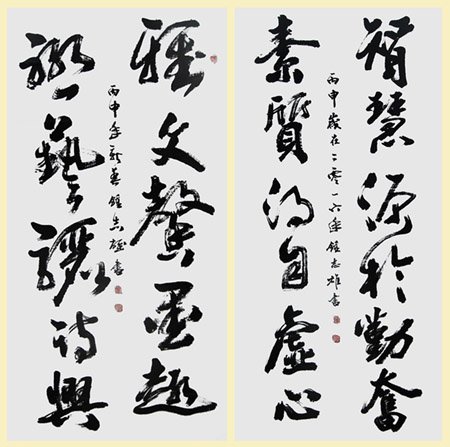 智慧源於勤奮
素質得自虛心
丙申歲在二零一六年鍾志雄書
雅文馨墨趣
藝 詩興
丙申年新春鍾志雄書